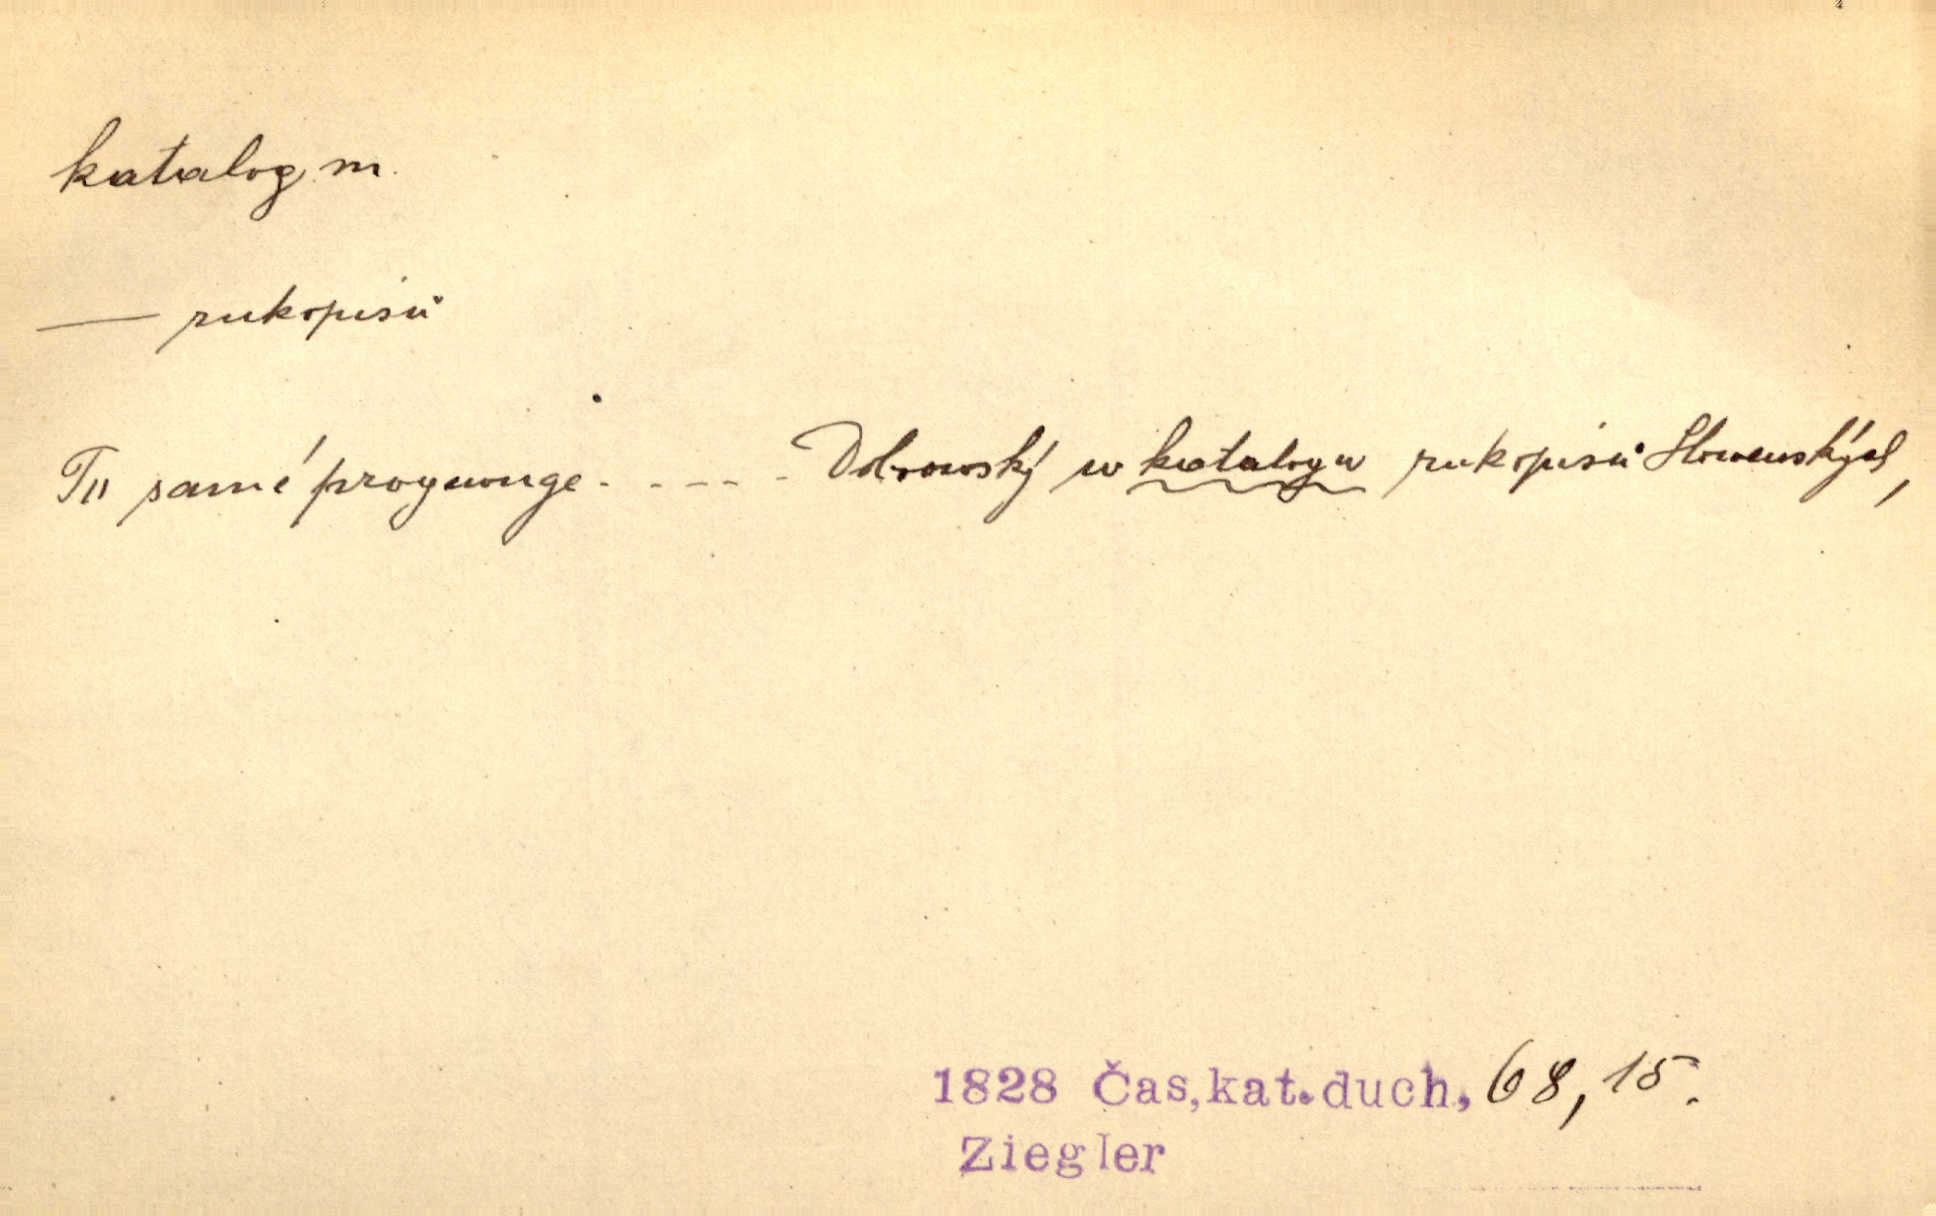 katalog m.
— rukopisů
Tu samé progewuge. - - - - - Dobrowský w katalogu rukopisů Slowenských,
1828 Čas,kat.duch, 68, 15.
Ziegler